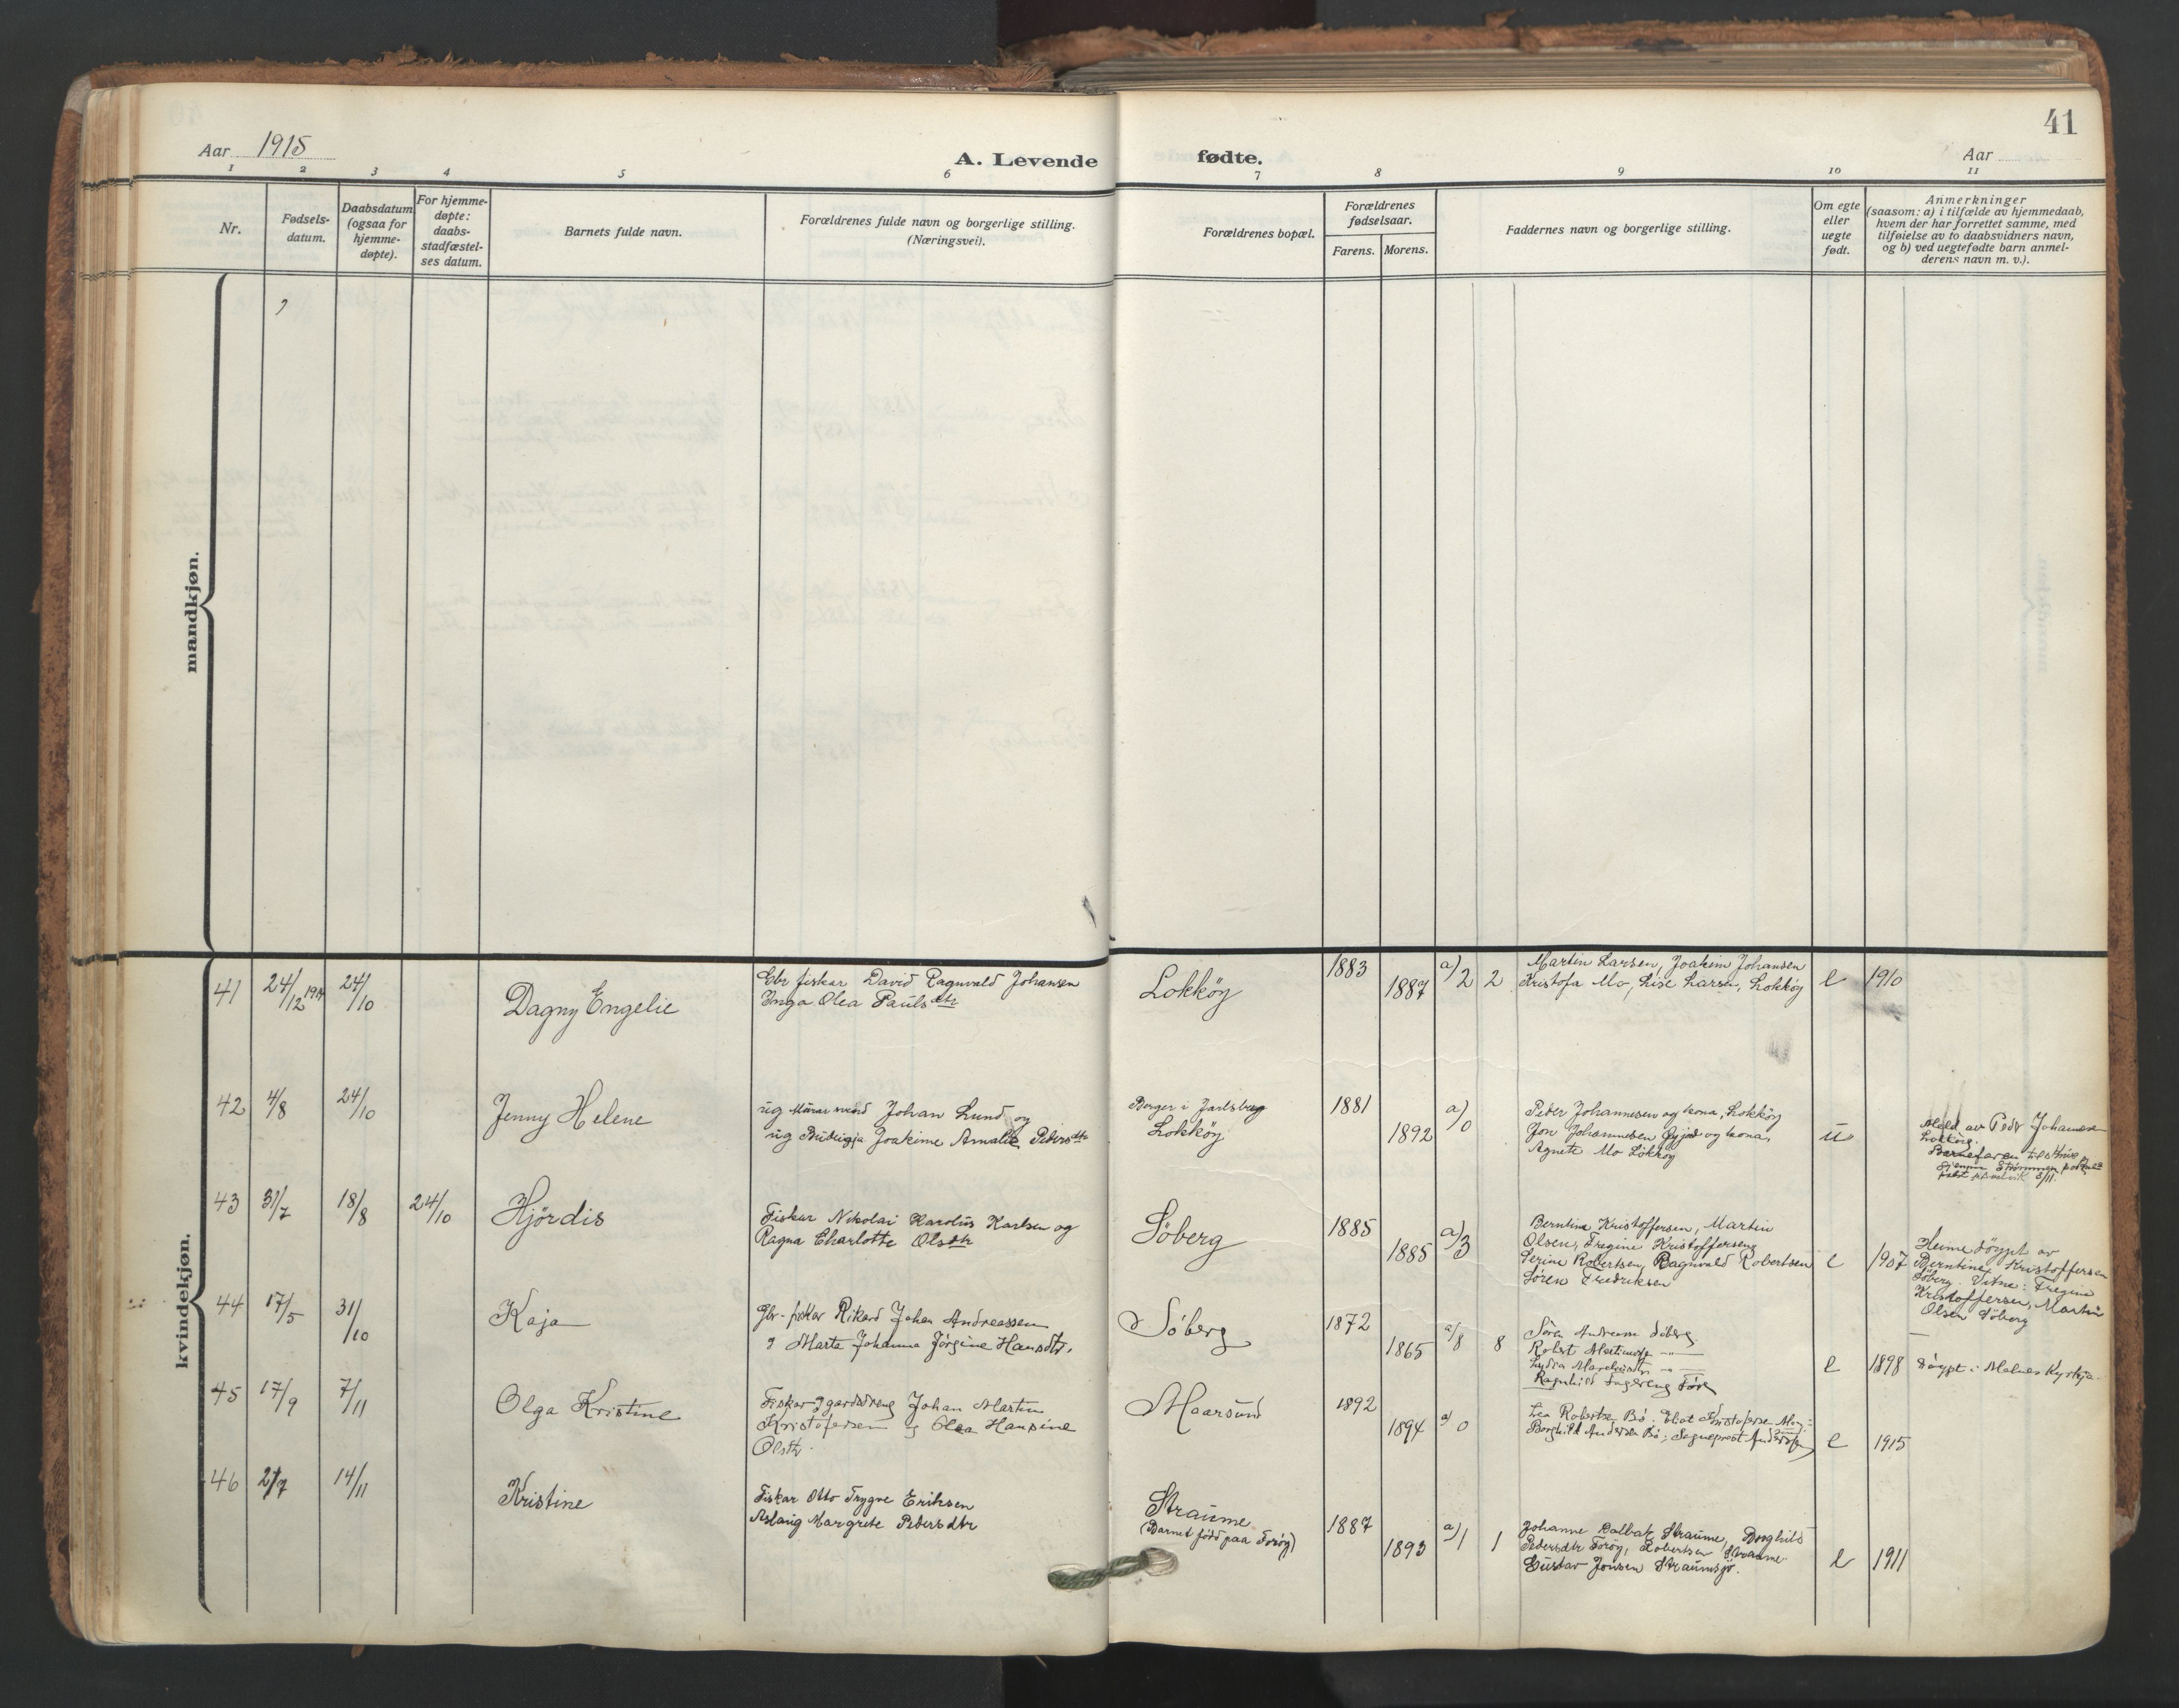 41
Aar 1915
A. Levende fødte.
Aar
1 2 3 4 5 6 7 8 9 10 11
Nr.
Fødsels-
datum.
Daabsdatum
(ogsaa for
hjemme-
døpte).
For hjemme-
døpte:
daabs-
stadfæstel-
ses datum.
Barnets fulde navn.
Forældrenes fulde navn og borgerlige stilling.
(Næringsvei).
Forældrenes bopæl.
Forældrenes
fødselsaar.
Farens. Morens.
Faddernes navn og borgerlige stilling.
Om egte
eller
uegte
født.
Anmerkninger
(saasom: a) i tilfælde av hjemmedaab,
hvem der har forrettet samme, med
tilføielse av to daabsvidners navn,
og b) ved uegtefødte barn anmel-
derens navn m. v.).
mandkjøn.
kvindekjøn.
41 24/12 1914 24/10
Dagny Engelie
Gbr fiskar David Ragnvald Johansen
Inga Olea Paulsdtr
Lokkøy
1883
1887
a) 2 2
Martin Larsen, Joakim Johansen
Kristofa Mo, Lise Larsen, Lokkøy
e 1910
42 4/8 24/10
Jenny Helene
ug Murarsvend Johan Lund og
ug Budeigja Joakime Amalie Pedersdtr
Borger i Jarlsberg
Lokkøy
1881
1892
a) 0
Peder Johannesen og kona, Lokkøy
Jon Johannesen og kona,
Agnete Mo Lokkøy
u
Meld av Pedr Johannesen
Lokkøy.
Barnefaren
43 31/7 18/8 24/10
Hjördis
Fiskar Nikolai Karolus Karlsen og
Ragna Charlotte Olsdtr
Söberg
1885
1885
a) 3
Berntine Kristoffersen, Martin
Olsen, Fregine Kristoffersen,
Serine Robertsen, Ragnvald Robertsen
Sören Fredriksen
e 1907
Heime döypt av
Berntine Kristoffersen
Söberg. Vitne: Fregine
Kristoffersen, Martin
Olsen Söberg
44 17/5 31/10
Kaja
Gbr-fiskar Rikard Johan Andreassen
og Marta Johanna Jørgine Hansdtr.
Söberg
1872
1865
a) 8 8
Sören Andreasen Söberg
Robert Martinsen
Lydia
Ragnhild
e 1898
Döypt i Malnes Kyrkja
45 17/9 7/11
Olga Kristine
Fiskar og gardsdreng Johan Martin
Kristofersen og Olea Hansine
Olsdtr.
Maarsund
1892
1894
a) 0
Lea Robertsen Bö, Kristofersen
Borghild Andersen Bö; Sogneprest Andersen
e 1915
46 2/7 14/11
Kristine
Fiskar Otto Trygve Eriksen
Aslaug Margrete Pedersdtr
Straume
(Barnet född paa Foröy)
1887
1893
a) 1 1
Johanne Kolbak Straume, Borghild
Pedersdtr Foröy, Robertsen Straume.
Gustav Jonsen Straumsjö.
e 1911